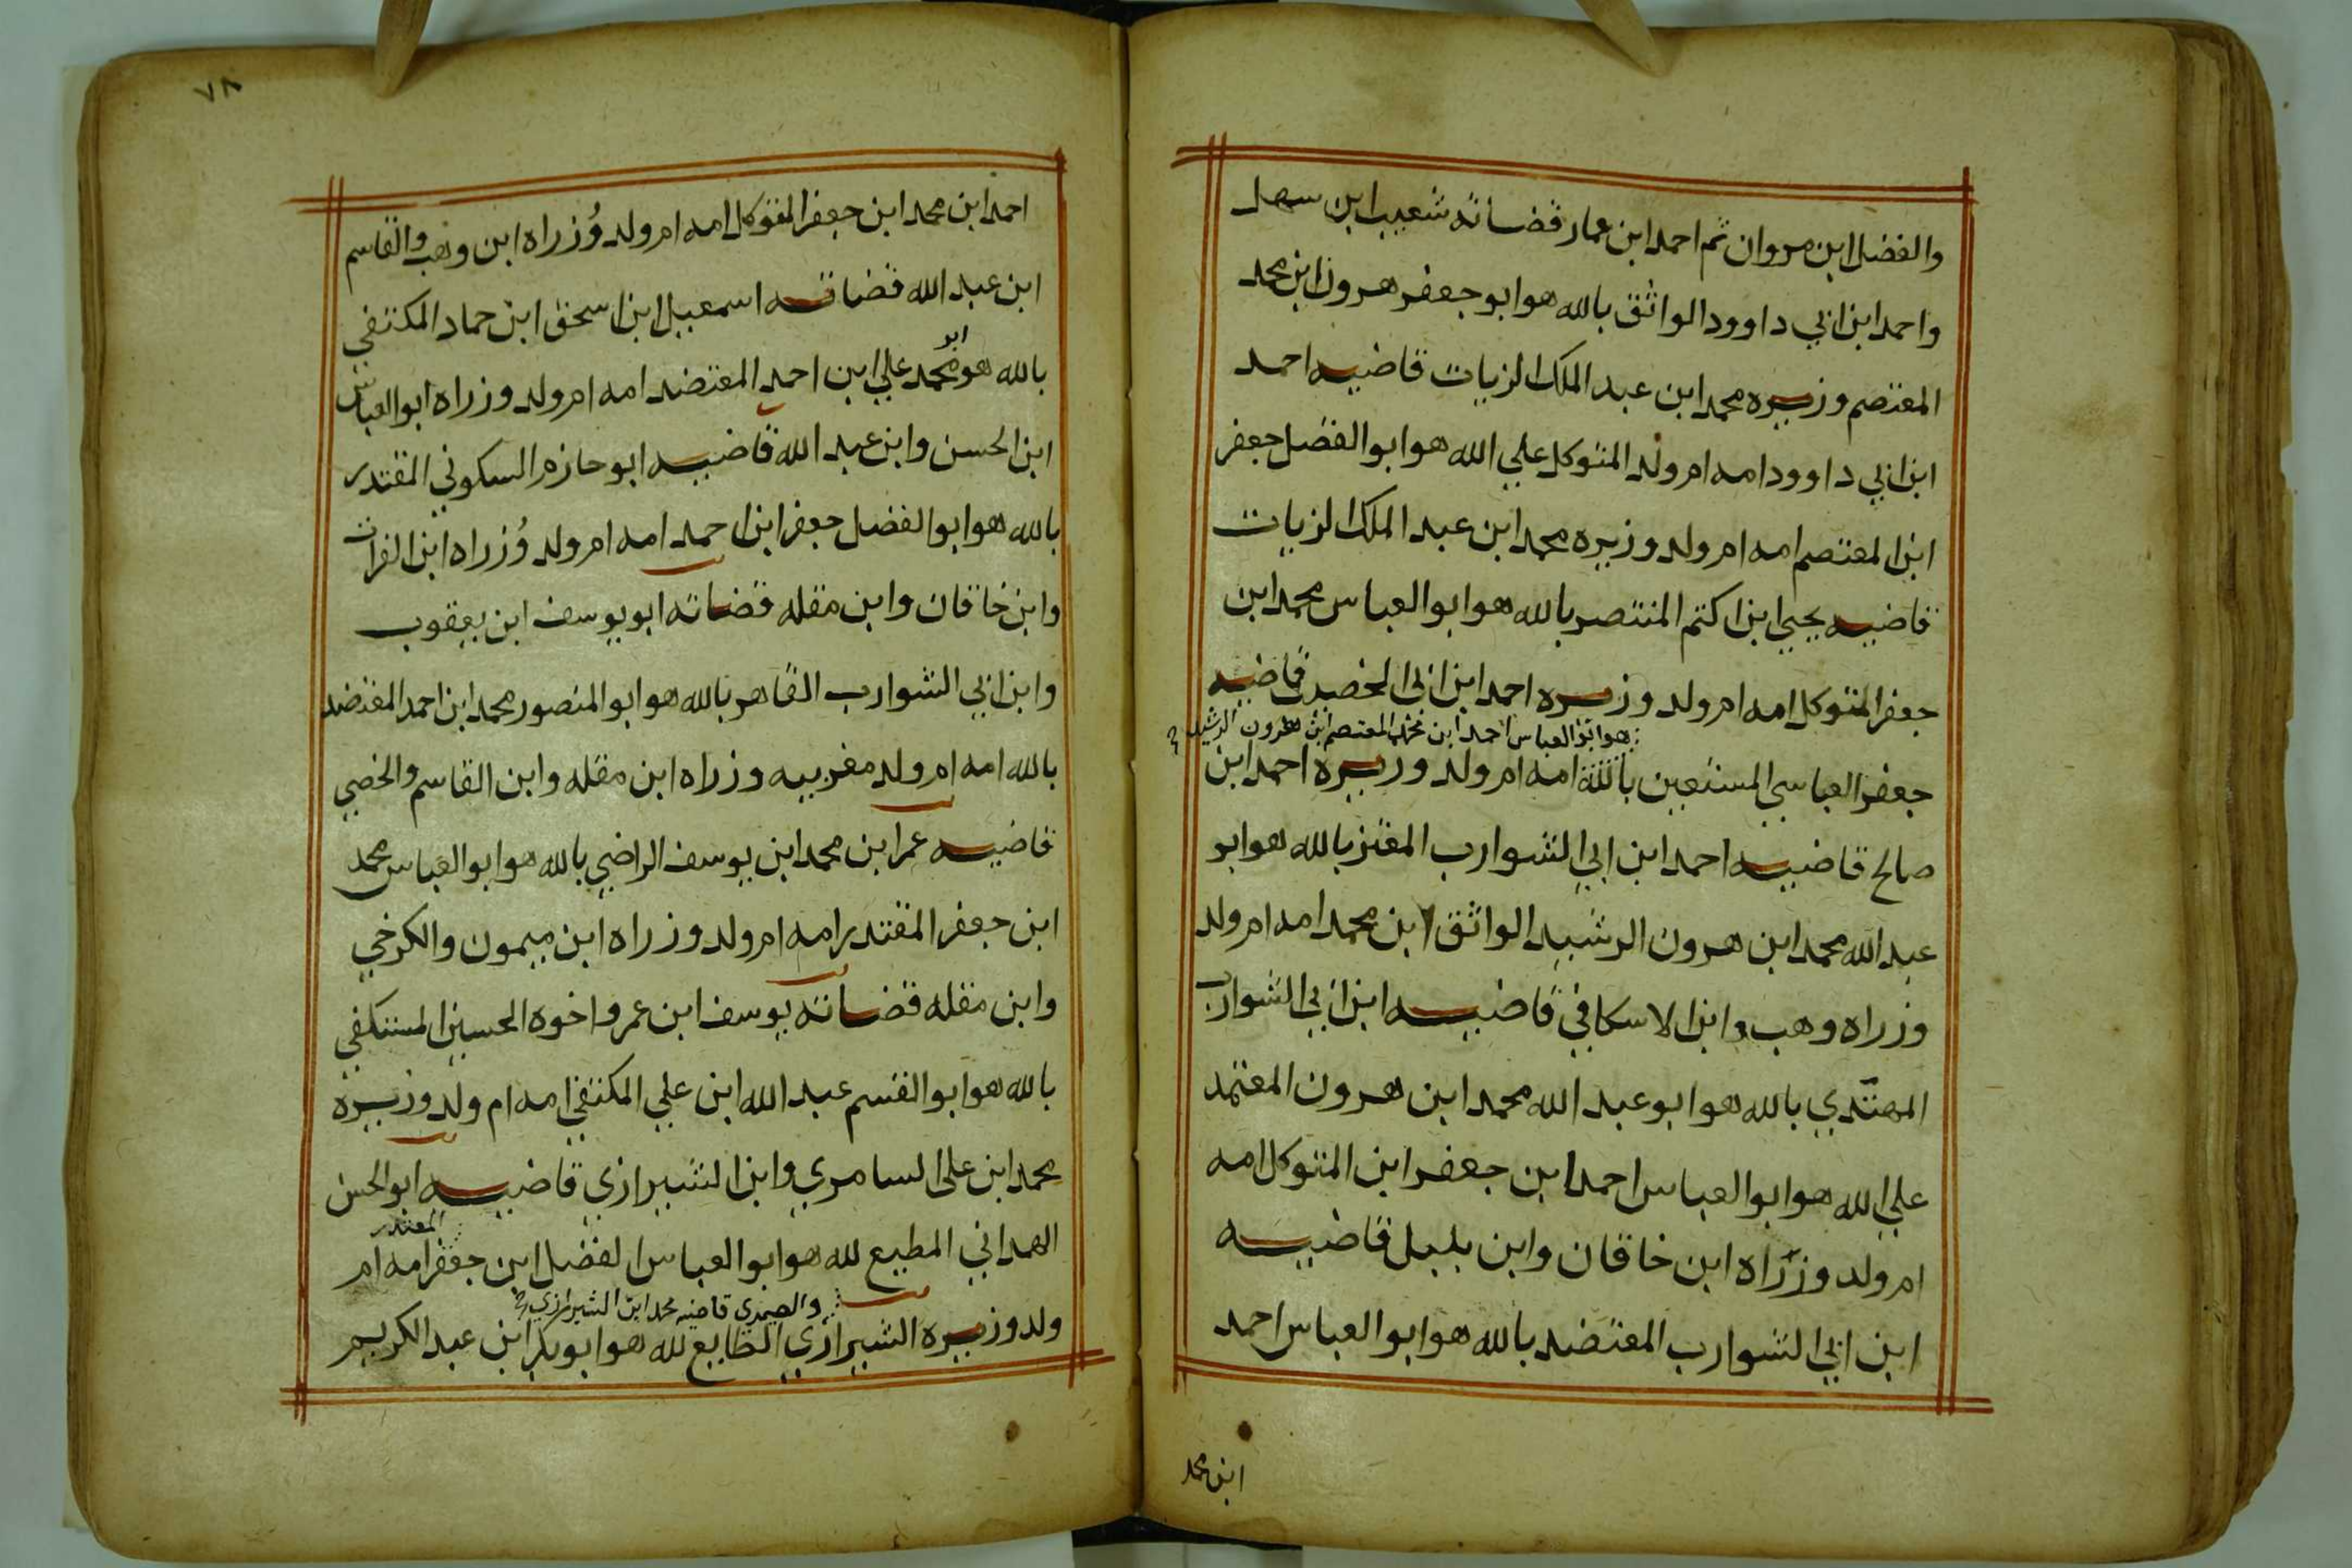 والفضل ابن مروان ثم احمد ابن عمار قضاته شعيب ابن سهل
واحمد ابن ابي داوود الواثق بالله هو ابو جعفر هرون ابن محمد
المعتصم وزيره محمد ابن عبد الملك الزيات قاضيه احمد
ابن ابي داوود امه ام ولد المتوكل علي الله هو ابو الفضل جعفر
ابن المعتصم امه ام ولد وزيره محمد ابن عبد الملك الزيات
قاضيه يحيي ابن اكتم المنتصر بالله هو ابو العباس محمد ابن
جعفر المتوكل امه ام ولد وزيره احمد ابن ابي الخصيب قاضيه
هو ابو العباس احمد ابن محمد المعتصم ابن هرون الرشيد
جعفر العباسي المستعين بالله امه ام ولد وزيره احمد ابن
صالح قاضيه احمد ابن ابي الشوارب المعتز بالله هو ابو
عبد الله محمد ابن هرون الرشيد الواثق ابن محمد امه ام ولد
وزراه وهب وابن الاسكافي قاضيه ابن ابي الشوارب
المهتدي بالله هو ابو عبد الله محمد ابن هرون المعتمد
علي الله هو ابو العباس احمد ابن جعفر ابن المتوكل امه
ام ولد وزراه ابن خاقان وابن بلبل قاضيه
ابن ابي الشوارب المعتضد بالله هو ابو العباس احمد
ابن محمد
٧٨
احمد ابن محمد ابن جعفر المتوكل امه ام ولد وُزراه ابن وهب والقاسم
ابن عبد الله قضاته اسمعيل ابن اسحق ابن حماد المكتفي
ابو
بالله هو محمد علي ابن احمد المعتضد امه ام ولد وزراه ابو العباس
ابن الحسن وابن عبد الله قاضيه ابو حازم السكوني المقتدر
بالله هو ابو الفضل جعفر ابن احمد امه ام ولد وُزراه ابن الفرات
وابن خاقان وابن مقله قضاته ابو يوسف ابن يعقوب
وابن ابي الشوارب القاهر بالله هو ابو المنصور محمد ابن احمد المعتضد
بالله امه ام ولد مغربيه وزراه ابن مقله وابن القاسم والخصي
قاضيه عمر ابن محمد ابن يوسف الراضي بالله هو ابو العباس محمد
ابن جعفر المقتدر امه ام ولد وزراه ابن ميمون والكرخي
وابن مقله قضاته يوسف ابن عمر واخوه الحسين المستكفي
بالله هو ابو القسم عبد الله ابن علي المكتفي امه ام ولد وزيره
محمد ابن علي السامري وابن الشيرازي قاضيه ابو الحسن
المقتدر
الهمداني المطيع لله هو ابو العباس الفضل ابن جعفر امه ام
والصيمري قاضيه محمد ابن الشيرازي
ولد وزيره الشيرازي الطايع لله هو ابو بكر ابن عبد الكريم